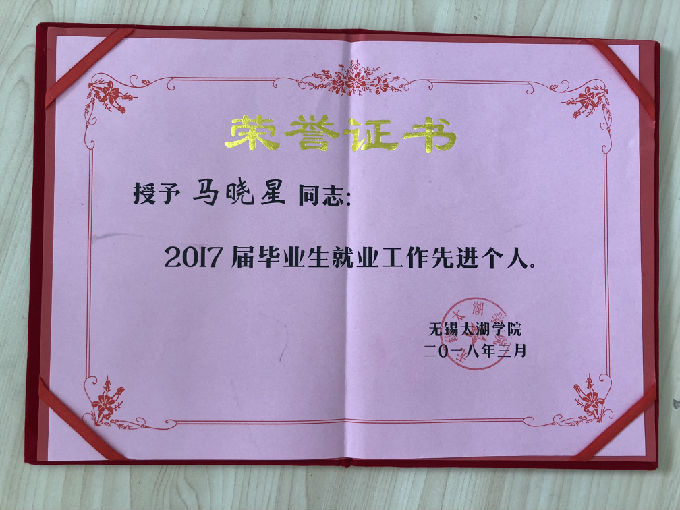 荣誉证书
授予 马晓星 同志:
2017届毕业生就业工作先进个人。
无锡太湖学院
二〇一八年三月